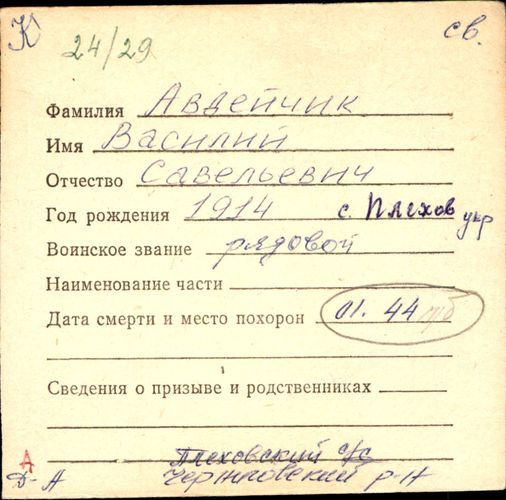 К
св.
24/29
Фамилия Авдейчик
Имя Василий
Отчество Савельевич
Год рождения 1914 с. Плехов укр
Воинское звание рядовой
Наименование части
Дата смерти и место похорон 01. 44 п/б
Сведения о призыве и родственниках
А Плеховский с/с
Д-А Черниговский р-н